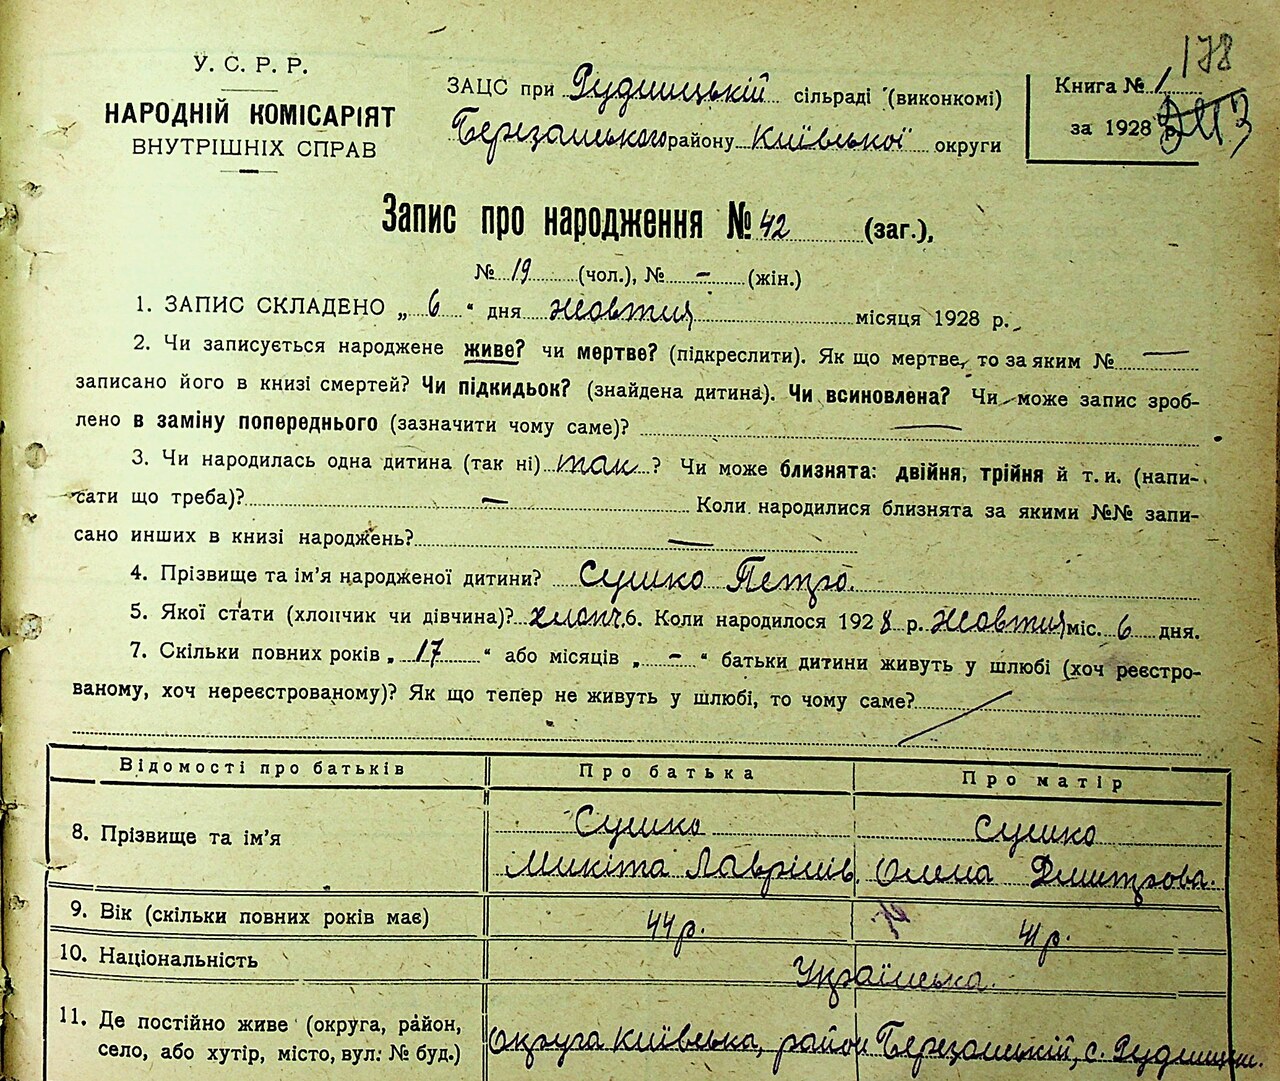 178
У. С. Р. Р.
НАРОДНІЙ КОМІСАРІЯТ
ВНУТРІШНІХ СПРАВ
ЗАЦС при Рудницькій сільраді (виконкомі)
Березанського району Київської округи
Книга № 1
за 1928 р.
Запис про народження № 42 (заг.),
№ 19 (чол.), № – (жін.)
1. ЗАПИС СКЛАДЕНО „ 6 “ дня жовтня місяця 1928 р.
2. Чи записується народжене живе? чи мертве? (підкреслити). Як що мертве, то за яким № —
записано його в книзі смертей? Чи підкидьок? (знайдена дитина). Чи всиновлена? Чи може запис зроб-
лено в заміну попереднього (зазначити чому саме)? —
3. Чи народилась одна дитина (так ні) так ? Чи може близнята: двійня, трійня й т. и. (напи-
сати що треба)? — Коли народилися близнята за якими №№ запи-
сано инших в книзі народжень? —
4. Прізвище та ім’я народженої дитини? Сушко Петро.
5. Якої статі (хлопчик чи дівчина)? хлопч. 6. Коли народилось 1928 р. Жовтня міс. 6 дня.
7. Скільки повних років „ 17 “ або місяців „ – “ батьки дитини живуть у шлюбі (хоч реєстро-
ваному, хоч нереєстрованому)? Як що тепер не живуть у шлюбі, то чому саме?
Відомості про батьків Про батька Про матір
8. Прізвище та ім’я Сушко Микіта Лаврінів. Сушко Олена Дмитрова.
9. Вік (скільки повних років має) 44 р. 41 р.
10. Національність Українська.
11. Де постійно живе (округа, район,
село, або хутір, місто, вул. № буд.) Округа Київська, район Березанський, с. Рудницьки.